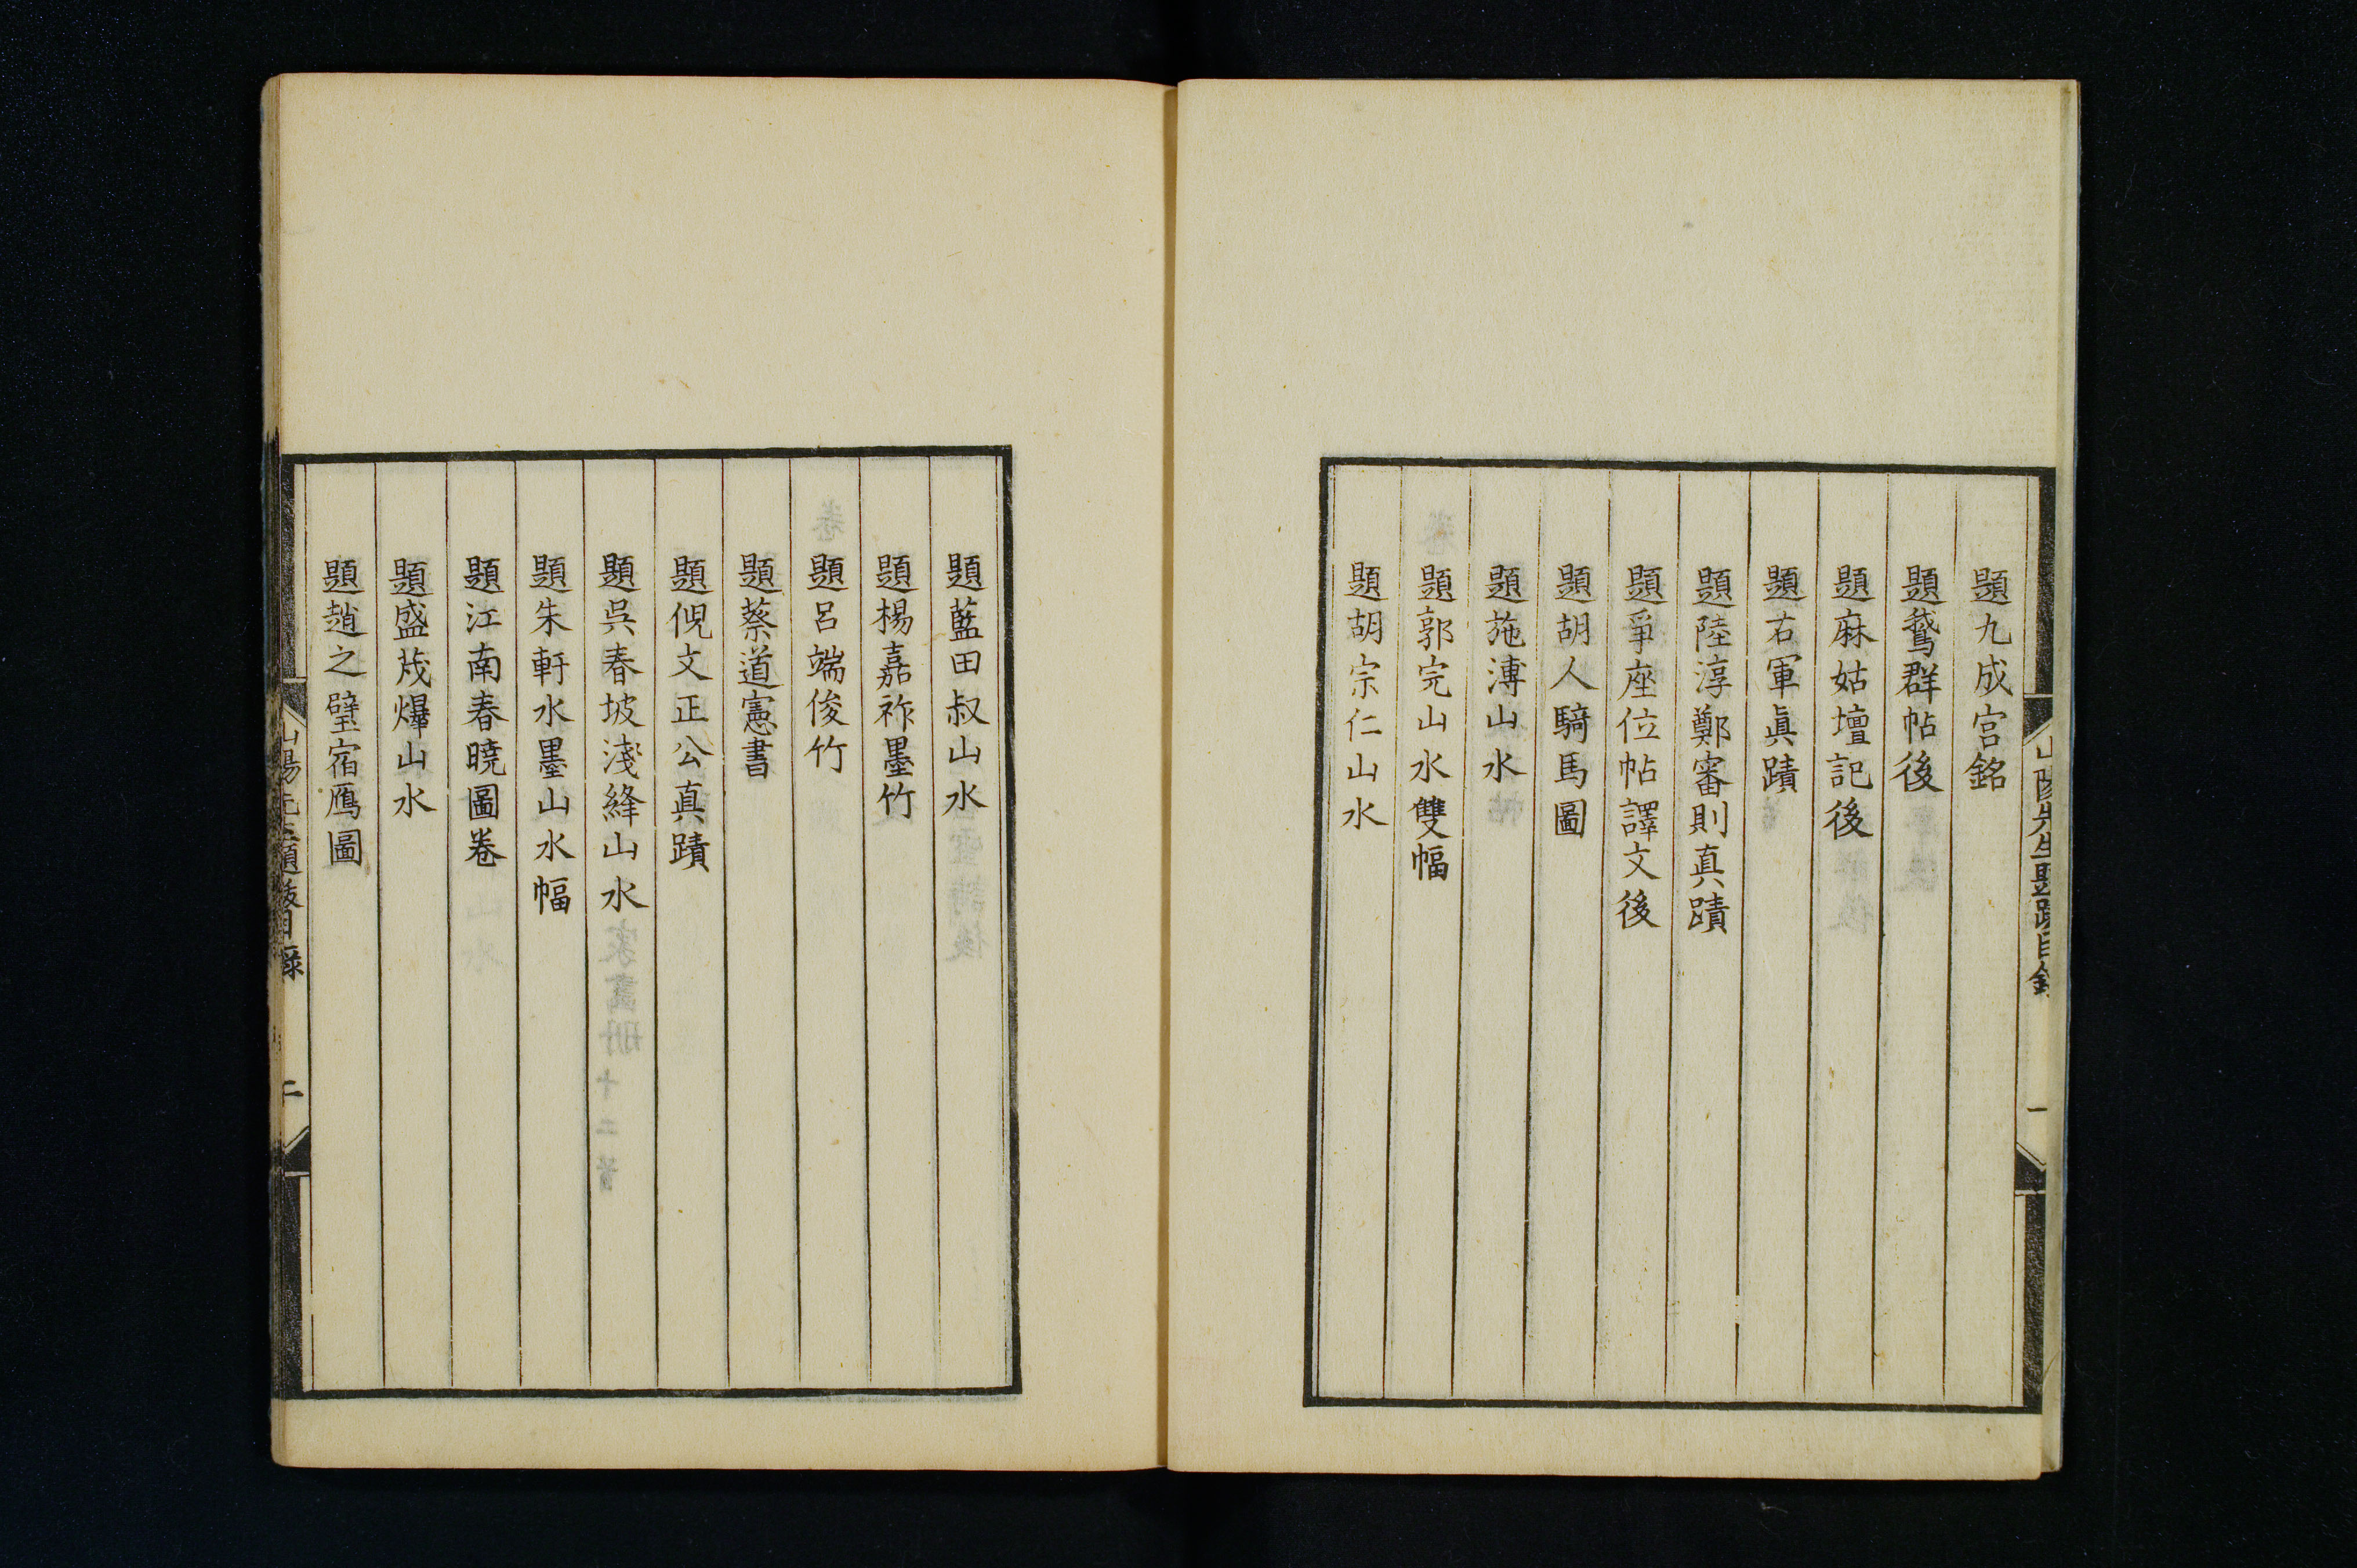 題九成宮銘
題鵞群帖後
題麻姑壇記後
題右軍眞蹟
題陸淳鄭審則真蹟
題爭座位帖譯文後
題胡人騎馬圖
題施溥山水
題郭完山水雙幅
題胡宗仁山水
山陽先生題跋目錄
一
題藍田叔山水
題楊嘉祚墨竹
題呂端俊竹
題蔡道憲書
題倪文正公真蹟
題吳春坡淺絳山水
題朱軒水墨山水幅
題江南春曉圖卷
題盛茂燁山水
題趙之璧宿鴈圖
山陽先生題跋目錄
二